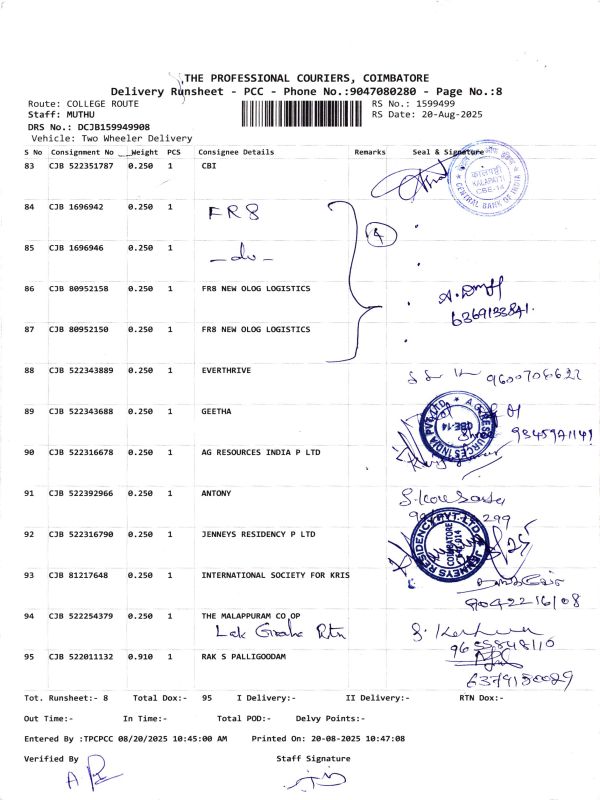 THE PROFESSIONAL COURIERS, COIMBATORE
Delivery Runsheet - PCC - Phone No.:9047080280 - Page No.:8
Route: COLLEGE ROUTE RS No.: 1599499
Staff: MUTHU RS Date: 20-Aug-2025
DRS No.: DCJB159949908
Vehicle: Two Wheeler Delivery
S No Consignment No Weight PCS Consignee Details Remarks Seal & Signature
83 CJB 522351787 0.250 1 CBI
KALAPATTI
CBE-14
CENTRAL BANK OF INDIA
84 CJB 1696942 0.250 1 FR8
4
85 CJB 1696946 0.250 1 -do-
86 CJB 80952158 0.250 1 FR8 NEW OLOG LOGISTICS
6369133841.
87 CJB 80952150 0.250 1 FR8 NEW OLOG LOGISTICS
88 CJB 522343889 0.250 1 EVERTHRIVE
89 CJB 522343688 0.250 1 GEETHA
90 CJB 522316678 0.250 1 AG RESOURCES INDIA P LTD
A.G. RESOURCES INDIA PVT. LTD.
CBE-14
91 CJB 522392966 0.250 1 ANTONY
299
92 CJB 522316790 0.250 1 JENNEYS RESIDENCY P LTD
JENNEYS RESIDENCY PVT. LTD
COIMBATORE
641 014
93 CJB 81217648 0.250 1 INTERNATIONAL SOCIETY FOR KRIS
9042216108
94 CJB 522254379 0.250 1 THE MALAPPURAM CO OP
Rtn
95 CJB 522011132 0.910 1 RAK S PALLIGOODAM
6379150029
Tot. Runsheet:- 8 Total Dox:- 95 I Delivery:- II Delivery:- RTN Dox:-
Out Time:- In Time:- Total POD:- Delvy Points:-
Entered By :TPCPCC 08/20/2025 10:45:00 AM Printed On: 20-08-2025 10:47:08
Verified By Staff Signature